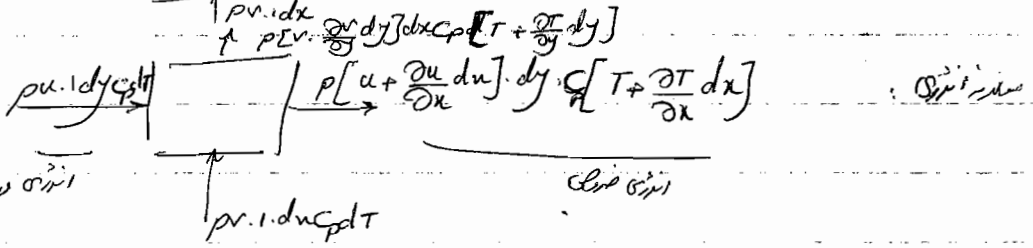 ρv.1dx
ρ[v. ∂v/∂y dy]dx Cp d[T + ∂T/∂y dy]
ρu.1dy Cp dT
ρ[u + ∂u/∂x dx].dy.Cp[T + ∂T/∂x dx]
معادله انرژی :
انرژی
انرژی خروجی
ρv.1.dx Cp dT